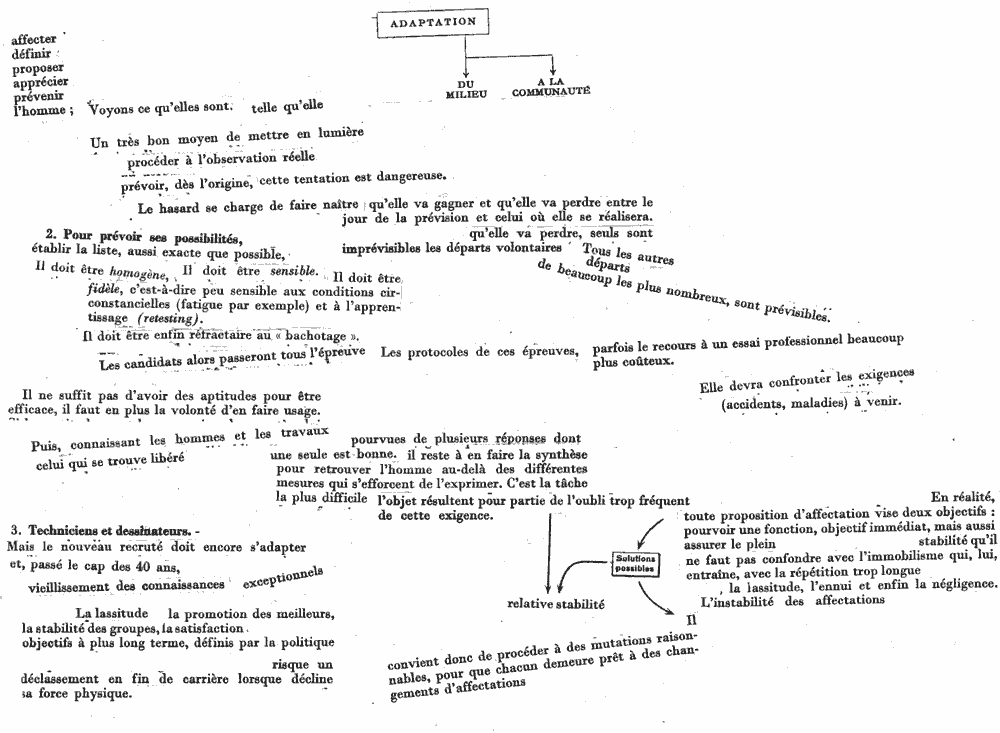 ADAPTATION
DU
MILIEU
A LA
COMMUNAUTÉ
affecter
définir
proposer
apprécier
prévenir
l'homme ; Voyons ce qu'elles sont. telle qu'elle
Un très bon moyen de mettre en lumière
procéder à l'observation réelle
prévoir, dès l'origine, cette tentation est dangereuse.
Le hasard se charge de faire naître qu'elle va gagner et qu'elle va perdre entre le
jour de la prévision et celui où elle se réalisera.
qu'elle va perdre, seuls sont
imprévisibles les départs volontaires Tous les autres
départs
de beaucoup les plus nombreux, sont prévisibles.
2. Pour prévoir ses possibilités,
établir la liste, aussi exacte que possible,
Il doit être homogène, Il doit être sensible. Il doit être
fidèle, c'est-à-dire peu sensible aux conditions cir-
constancielles (fatigue par exemple) et à l'appren-
tissage (retesting).
Il doit être enfin réfractaire au « bachotage ».
Les candidats alors passeront tous l'épreuve Les protocoles de ces épreuves, parfois le recours à un essai professionnel beaucoup
plus coûteux.
Elle devra confronter les exigences
(accidents, maladies) à venir.
Il ne suffit pas d'avoir des aptitudes pour être
efficace, il faut en plus la volonté d'en faire usage.
Puis, connaissant les hommes et les travaux
celui qui se trouve libéré
pourvues de plusieurs réponses dont
une seule est bonne. il reste à en faire la synthèse
pour retrouver l'homme au-delà des différentes
mesures qui s'efforcent de l'exprimer. C'est la tâche
la plus difficile l'objet résultent pour partie de l'oubli trop fréquent
de cette exigence.
En réalité,
toute proposition d'affectation vise deux objectifs :
pourvoir une fonction, objectif immédiat, mais aussi
assurer le plein stabilité qu'il
ne faut pas confondre avec l'immobilisme qui, lui,
entraîne, avec la répétition trop longue
, la lassitude, l'ennui et enfin la négligence.
L'instabilité des affectations
Solutions
possibles
relative stabilité
Il
convient donc de procéder à des mutations raison-
nables, pour que chacun demeure prêt à des chan-
gements d'affectations
3. Techniciens et dessinateurs. -
Mais le nouveau recruté doit encore s'adapter
et, passé le cap des 40 ans,
vieillissement des connaissances exceptionnels
La lassitude la promotion des meilleurs,
la stabilité des groupes, la satisfaction.
objectifs à plus long terme, définis par la politique
risque un
déclassement en fin de carrière lorsque décline
sa force physique.